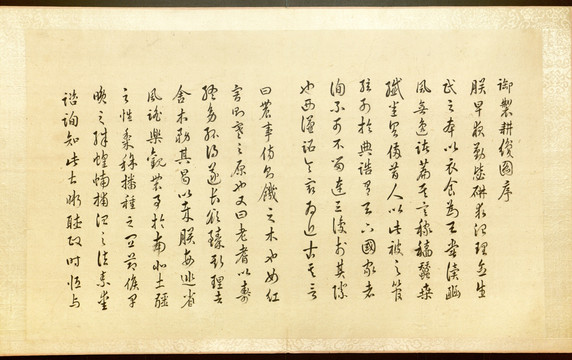 御製耕織圖序
朕早夜勤毖研求治理念生
民之本以衣食為天嘗讀豳
風無逸諸篇其言稼穡蠶桑
纖悉具備昔人以此被之管
絃列於典誥有天下國家者
洵不可不留連三復於其際
也西漢詔令最為近古其言
曰農事傷則饑之本也女紅
害則寒之原也又曰老耆以壽
終幼孤得遂長欲臻斯理者
舍本務其曷以哉朕每巡省
風謠樂觀農事於南北土疆
之性黍稌播種之宜節候早
晚之殊蝗蝻捕治之法素愛
諮詢知此甚晰聽政時恆與